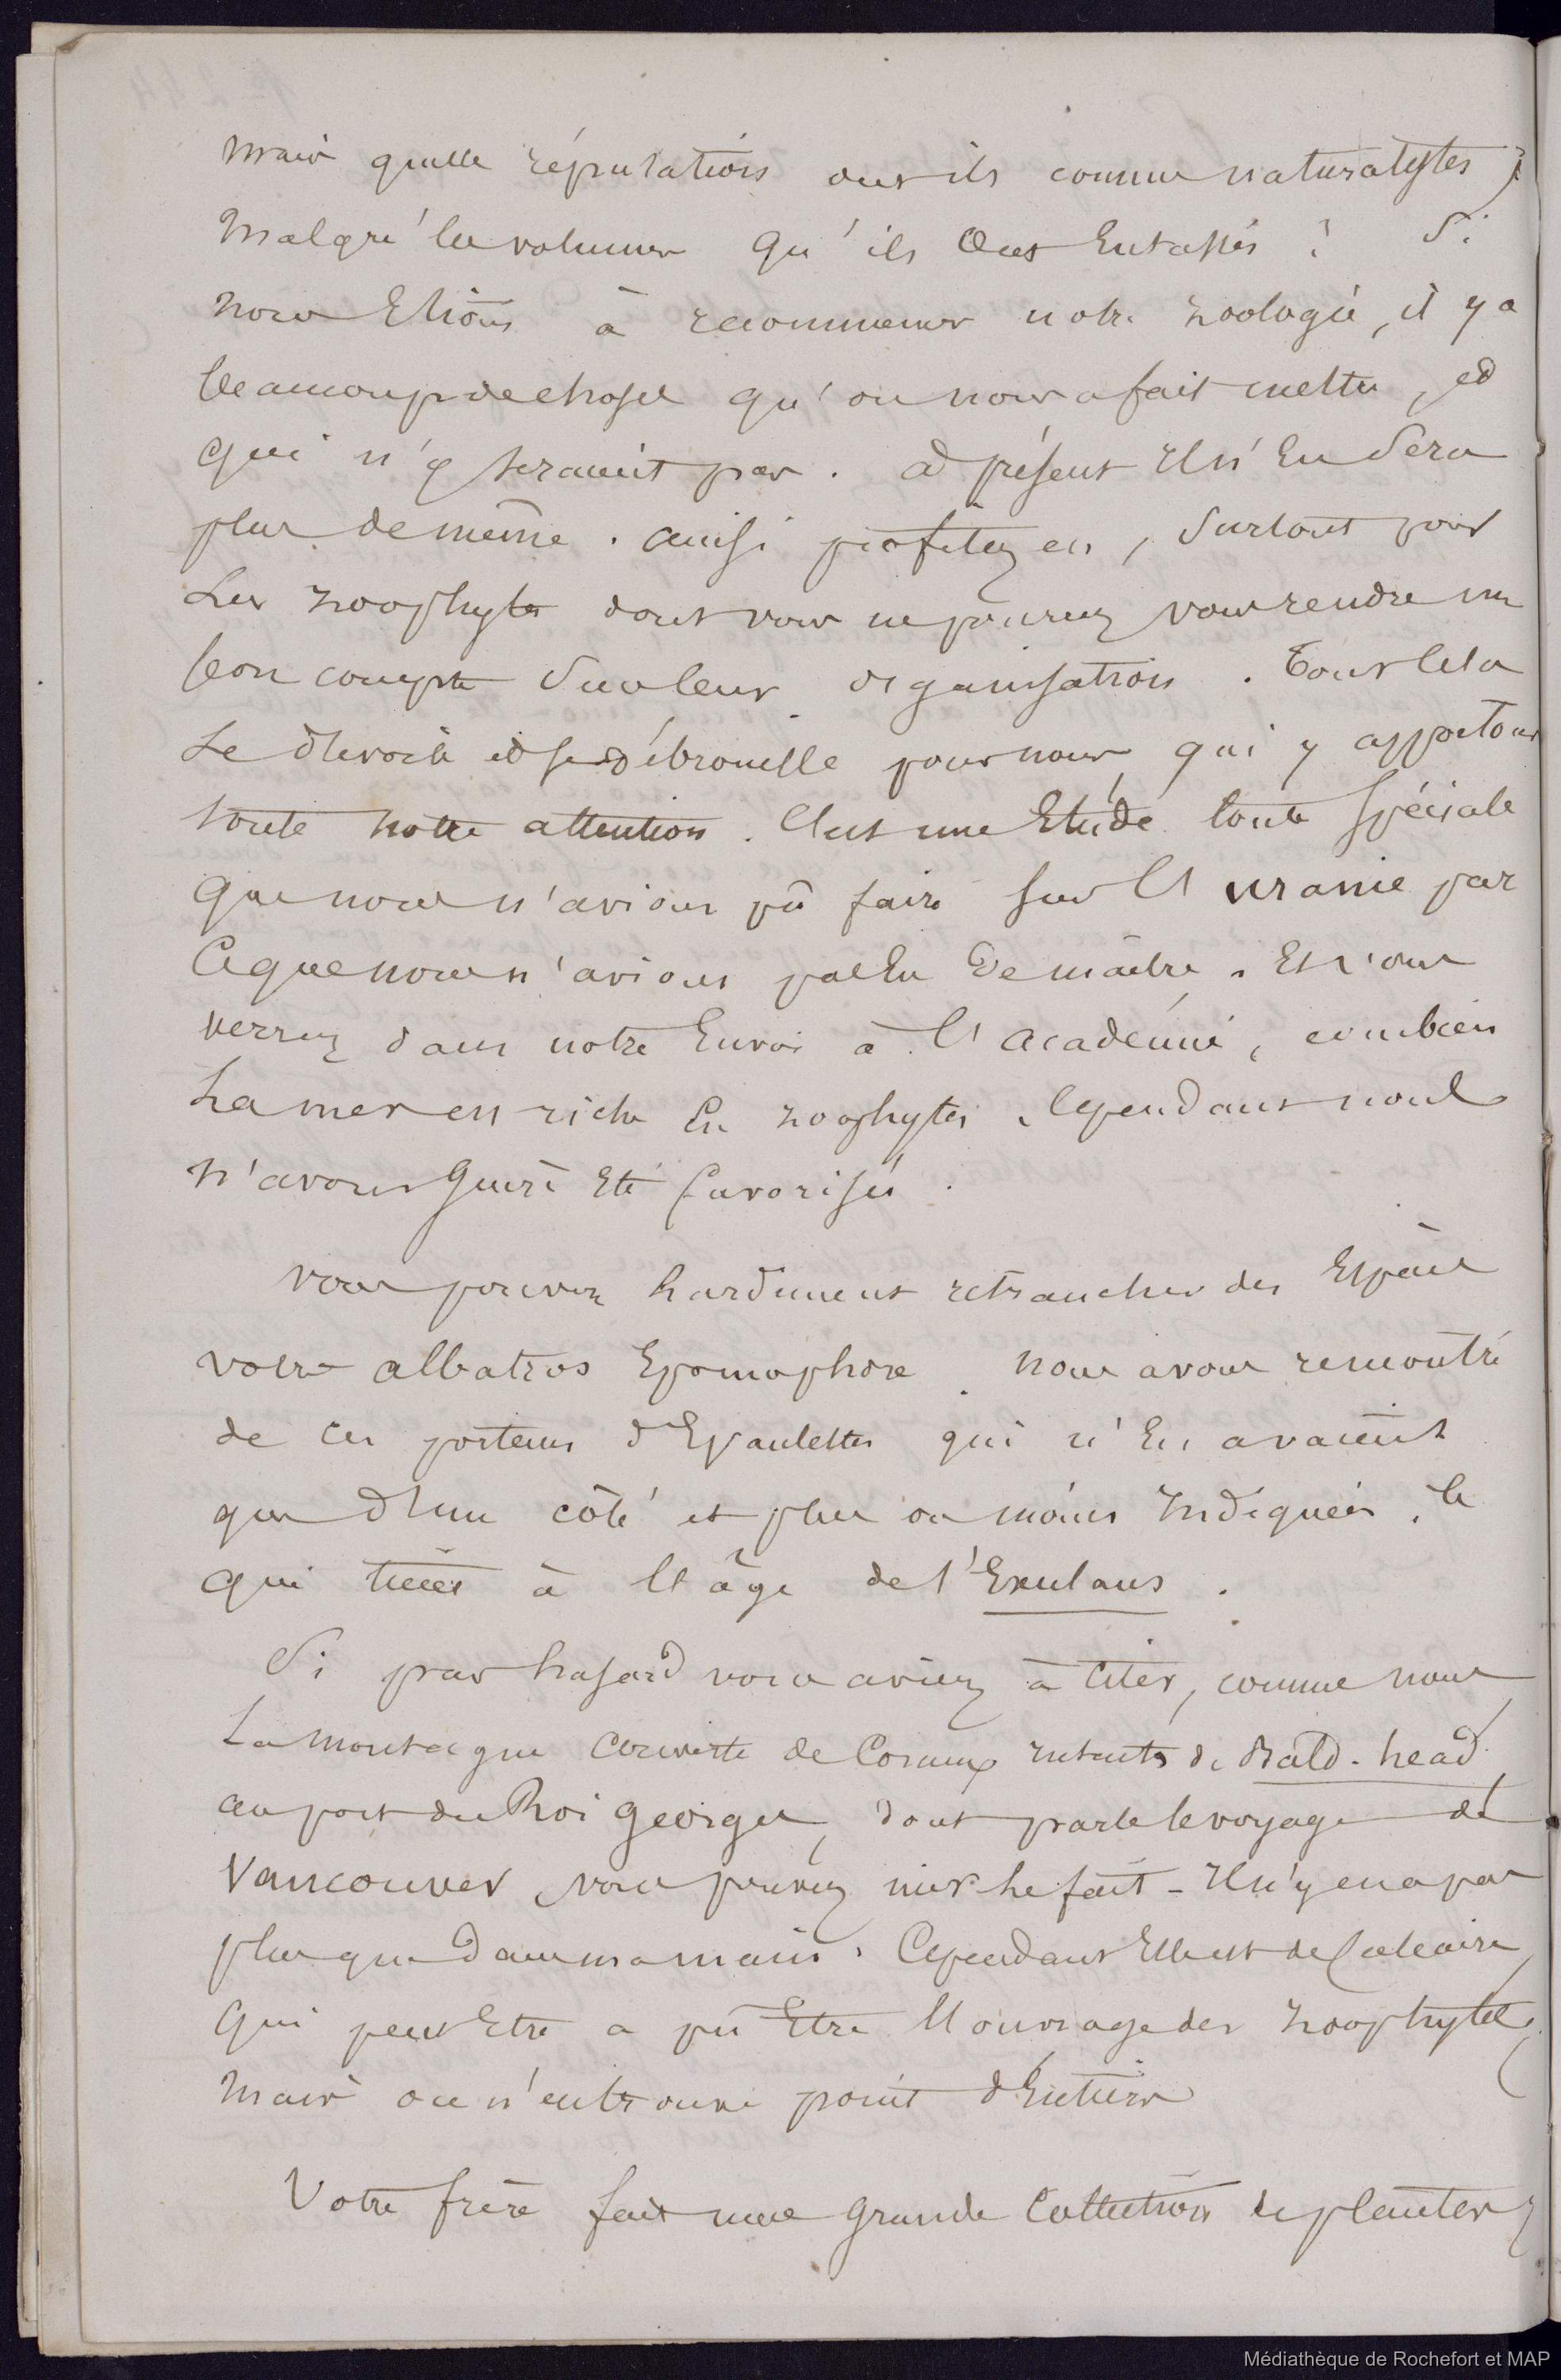 mais quelle réputation ont ils comme naturalistes,
Malgré les volumes qu'ils Ont Entassés ? Si
nous Etions à recommencer notre zoologie, il y a
beaucoup de choses qu'on nous a fait mettre, et
qui n'y seraient pas. à présent Il n'En Sera
plus de même. ainsi profitez en, Surtout pour
Les zoophytes dont vous ne pouvez vous rendre un
bon compte Sur leur organisation. Tout Cela
Se et se débrouille pour nous qui y apportons
toute notre attention. C'est une Etude toute Spéciale
que nous n'avions pû faire Sur l'uranie par
Ce que nous n'avions pas Eu de maître. Et vous
verrez dans notre Envoi à l'académie, combien
La mer est riche En zoophytes. Cependant nous
n'avons Guère Eté favorisés.
Vous pouvez hardiment retrancher des Espèces
votre albatros Epomophore. nous avons rencontré
de ces porteurs d'Epaulettes qui n'En avaient
que d'un côté et plus ou moins Indiquées, Ce
qui tient à l'âge de l'Exulans.
Si par hasard vous aviez à citer, comme nous
La montagne couverte de Coraux Intacts de Bald-head
au port du Roi Georges, dont parle le voyage de
Vancouver, vous pouvez nier le fait - Il n'y en a pas
plus que dans ma main. Cependant Elle est de Calcaire
Qui peut Etre a pu Etre l'ouvrage des zoophytes,
Mais on n'en trouve point d'Entiers
Votre frère fait une Grande Collection de plantes,
Médiathèque de Rochefort et MAP